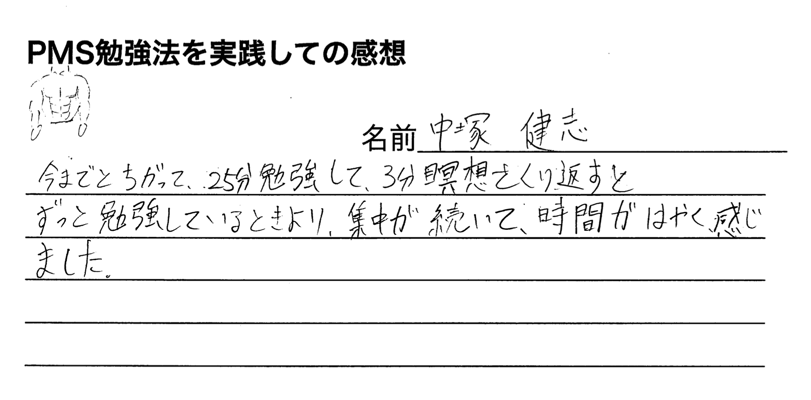 PMS勉強法を実践しての感想
名前 中塚 健志
今までとちがって、25分勉強して、3分瞑想をくり返すと
ずっと勉強しているときより、集中が続いて、時間がはやく感じ
ました。